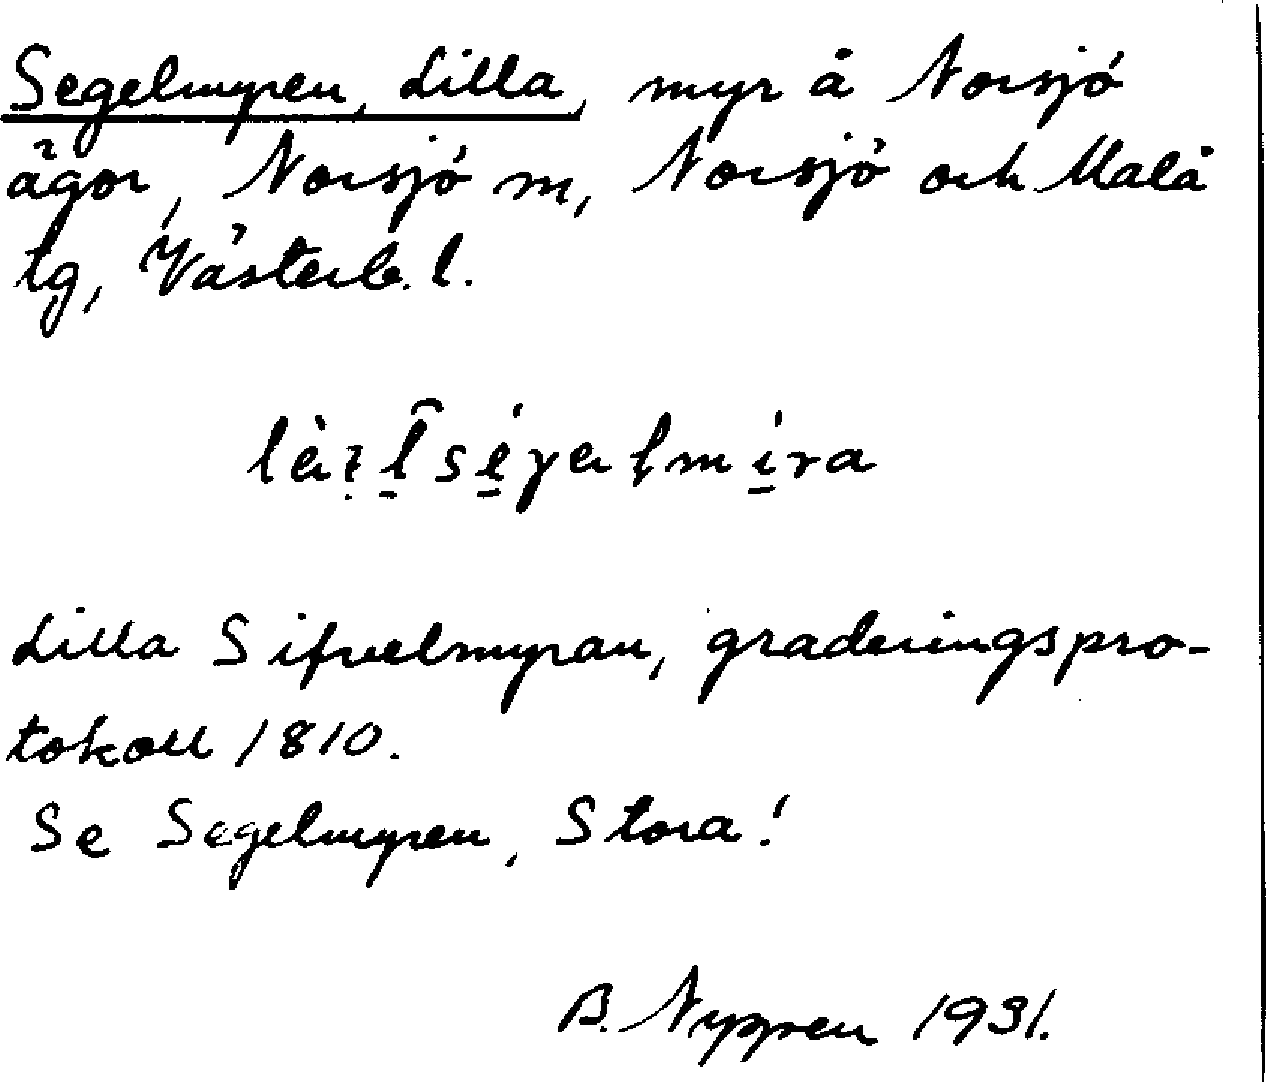 Segelmyren, Lilla, myr å Norsjö
ägor, Norsjö sn, Norsjö och Malå
tg, Västerb. l.
Lilla Sifvelmyran, graderingspro-
tokoll 1810.
Se Segelmyren, Stora!
B. Nygren 1931.